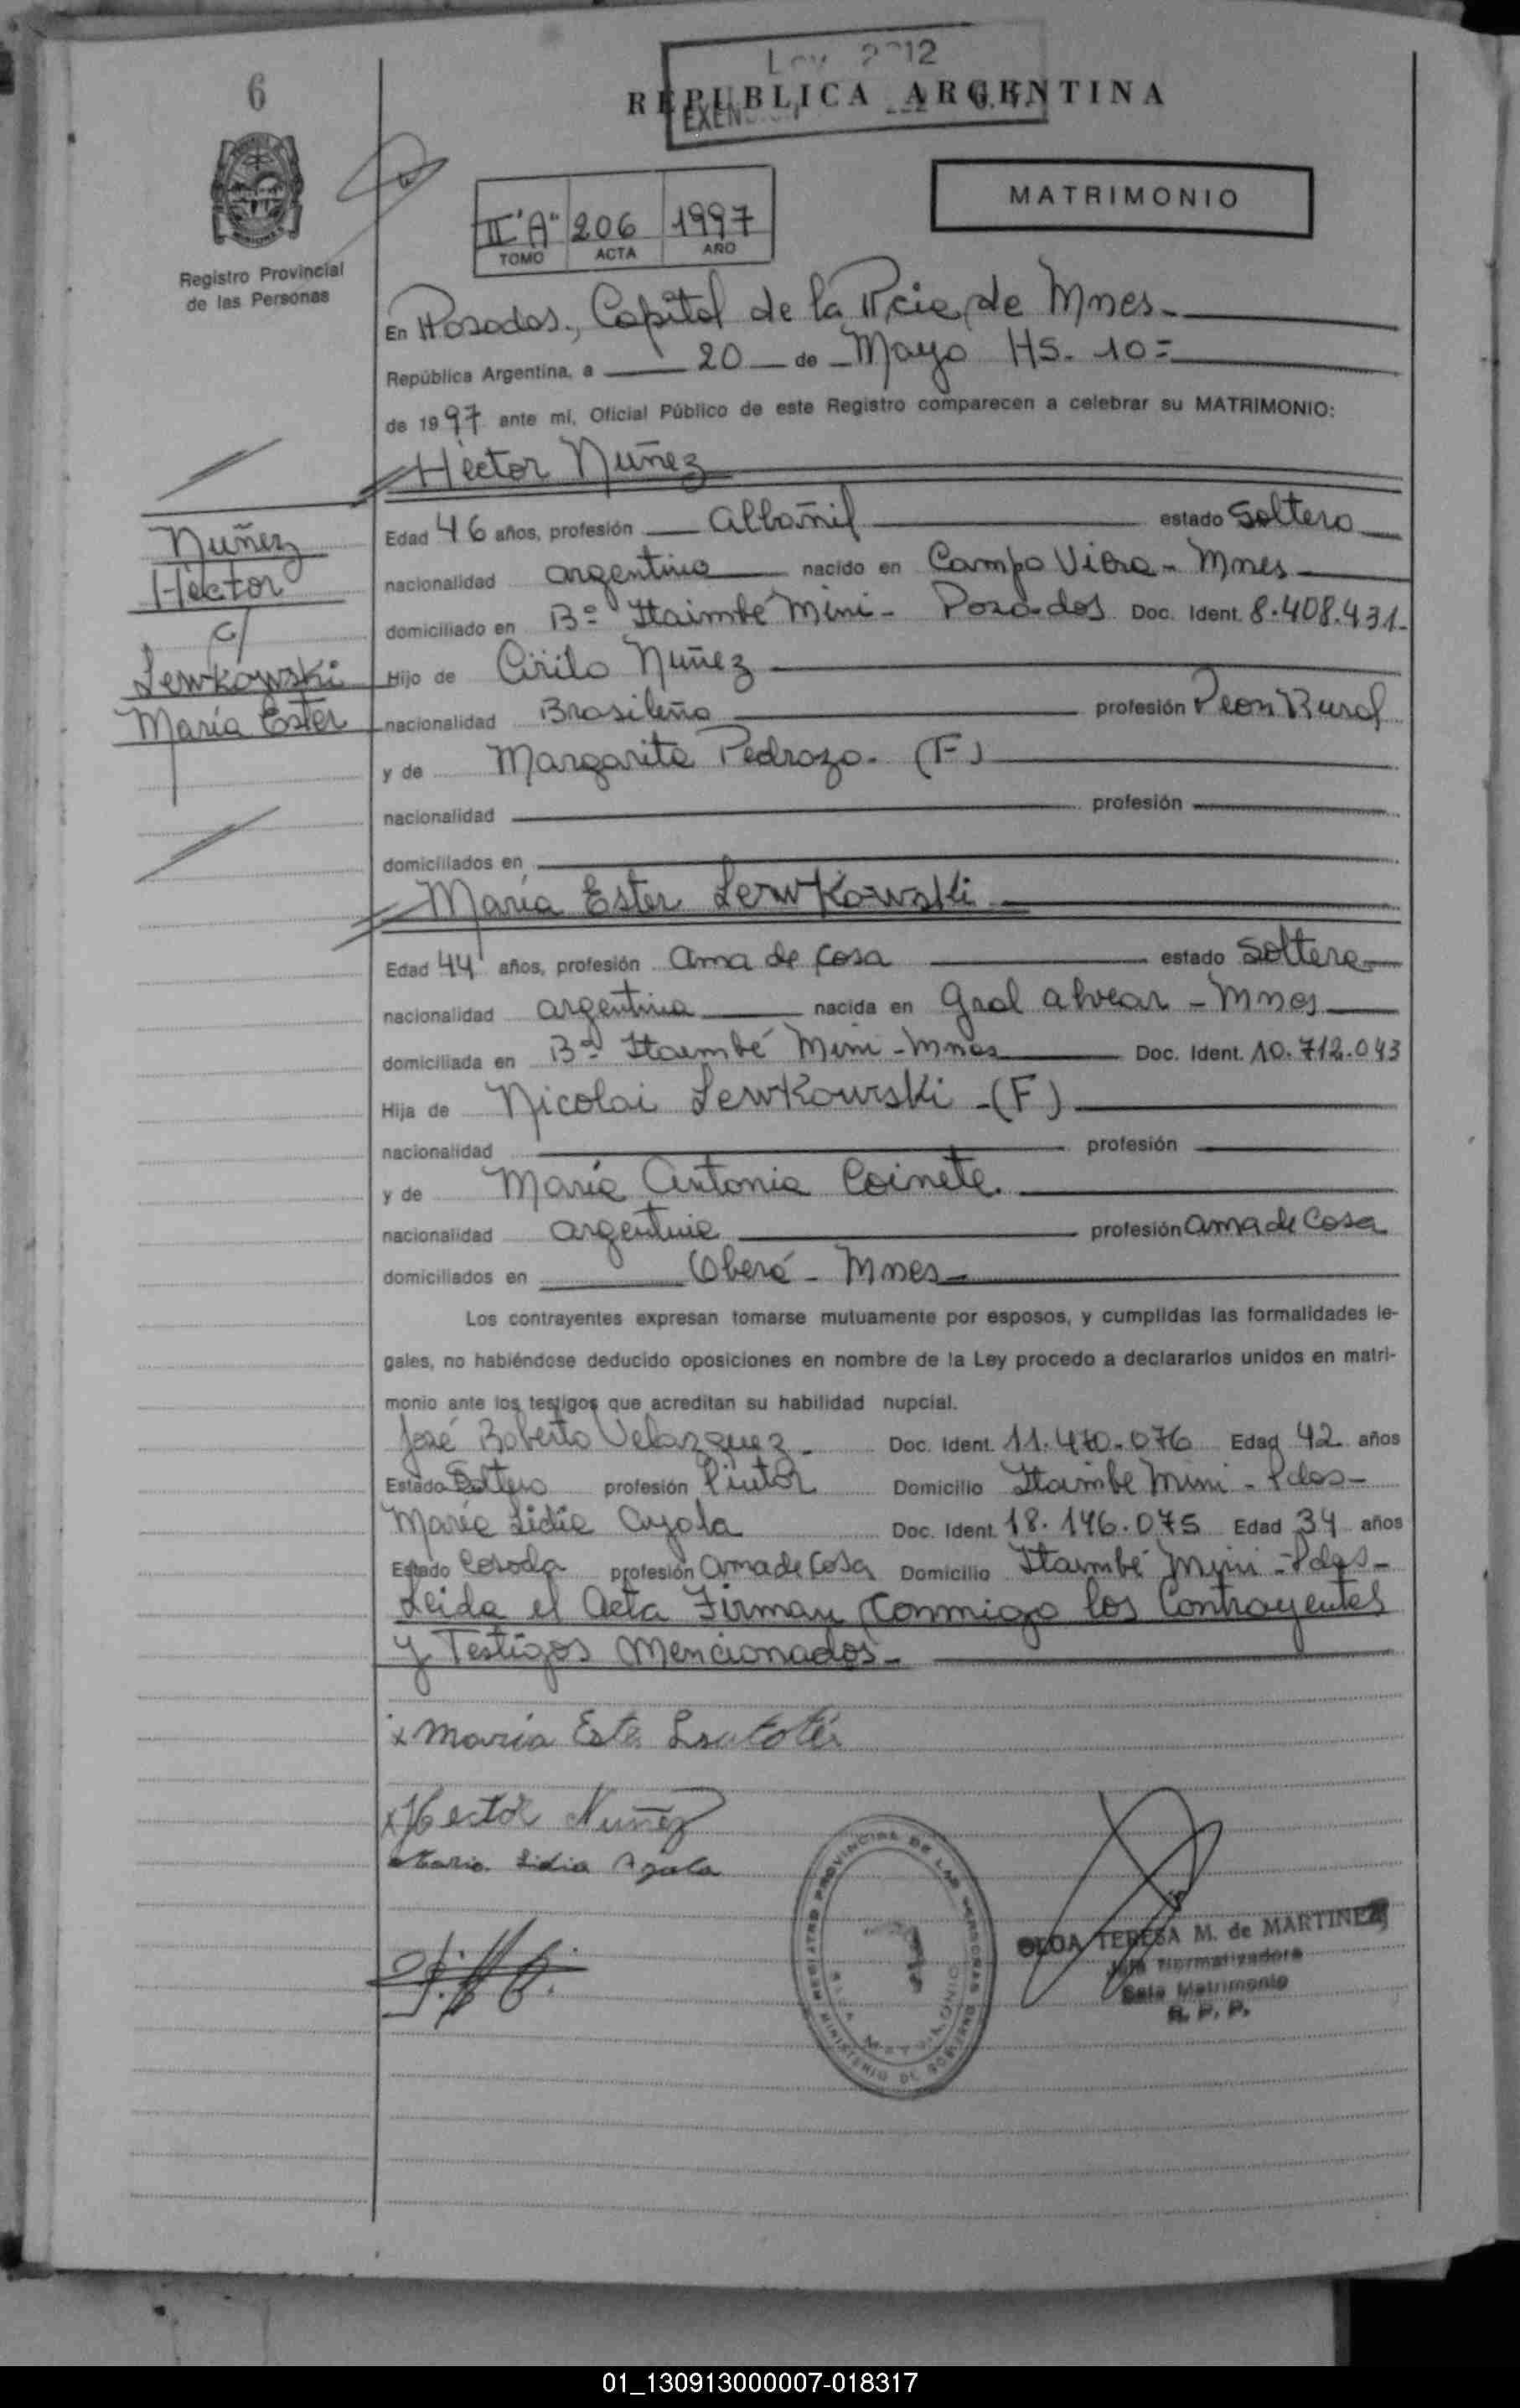 6
Ley 2712
REPUBLICA ARGENTINA
MATRIMONIO
II "A" 206 1997
TOMO ACTA AÑO
Registro Provincial
de las Personas
En Posadas, Capital de la Pcia. de Mnes.
República Argentina, a 20 de Mayo HS. 10=
de 1997 ante mi, Oficial Público de este Registro comparecen a celebrar su MATRIMONIO:
Héctor Nuñez
Edad 46 años, profesión albañil estado soltero
nacionalidad argentino nacido en Campo Viera - Mnes
domiciliado en Bº Itaimbé Mini - Posadas Doc. Ident. 8.408.431.
Hijo de Cirilo Nuñez
nacionalidad Brasileño profesión Peon Rural
y de Margarita Pedrozo. (F)
nacionalidad profesión
domiciliados en
Nuñez
Héctor
c/
Lewkowski
María Ester
María Ester Lewkowski
Edad 44 años, profesión ama de casa estado soltera
nacionalidad argentina nacida en Gral alvear - Mnes
domiciliada en Bº Itaembé Mini - Mnes Doc. Ident. 10.712.043
Hija de Nicolai Lewkowski - (F)
nacionalidad profesión
y de María Antonia Coinete.
nacionalidad argentina profesión ama de Casa
domiciliados en Oberá - Mnes
Los contrayentes expresan tomarse mutuamente por esposos, y cumplidas las formalidades le-
gales, no habiéndose deducido oposiciones en nombre de la Ley procedo a declararlos unidos en matri-
monio ante los testigos que acreditan su habilidad nupcial.
José Roberto Velazquez. Doc. Ident. 11.470.076 Edad 42 años
Estado Soltero profesión Pintor Domicilio Itaimbe Mini - Pdas -
María Lidia Ayala Doc. Ident. 18.146.075 Edad 34 años
Estado Casada profesión ama de Casa Domicilio Itaimbé Mini - Pdas -
Leida el Acta Firman Conmigo los Contrayentes
y Testigos Mencionados -
x María Ester
x Hector Nuñez
Maria Lidia Ayala
REGISTRO PROVINCIAL DE LAS PERSONAS
MINISTERIO DE GOBIERNO
OLGA TERESA M. de MARTINEZ
Jefa Normalizadora
Sala Matrimonio
R. P. P.
01_130913000007-018317